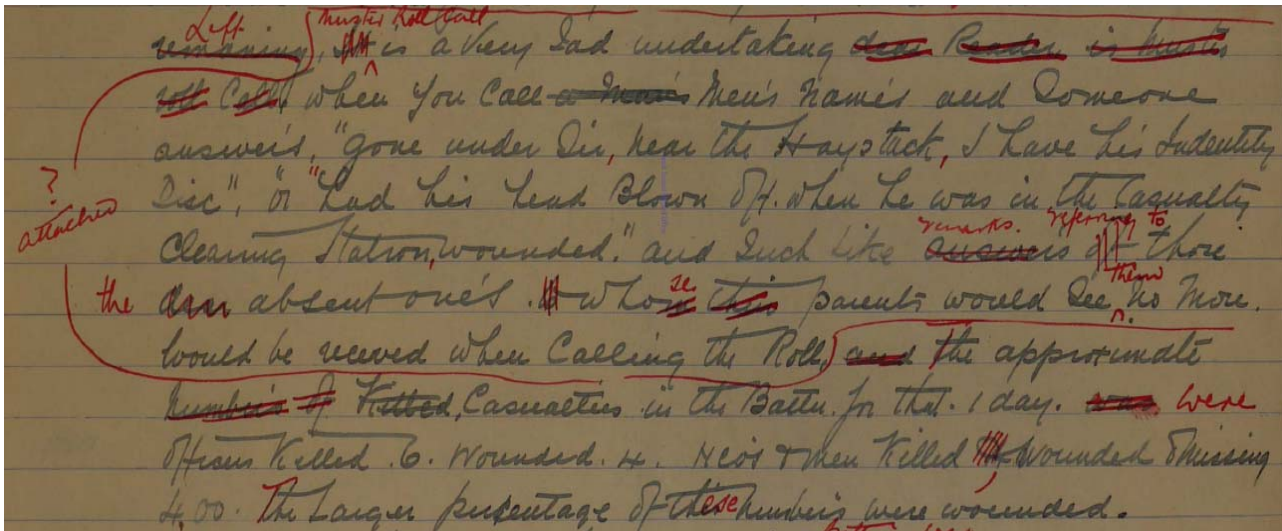 Left Muster Roll Call
remaining, it is a Very Sad undertaking dear Reader is Muster
roll Call, when You Call a Man's Men's Name's and Someone
answer's, "gone under Sir, near the Haystack, I have his Indentity
Disc", "or" had his head Blown Off. when he was in the Casualty
? attached
remarks. referring to
Clearing Station, wounded." and Such Like answers of those
them
the absent one's. whose this parents would See no More.
would be receved when Calling the Roll, and the approximate
Number's of Killed, Casualties in the Battn. for that. 1 day. was were
Officers Killed. 6. Wounded. 4. Nco's & Men Killed Wounded & Missing
400. The Larger Percentage of these Number's were wounded.